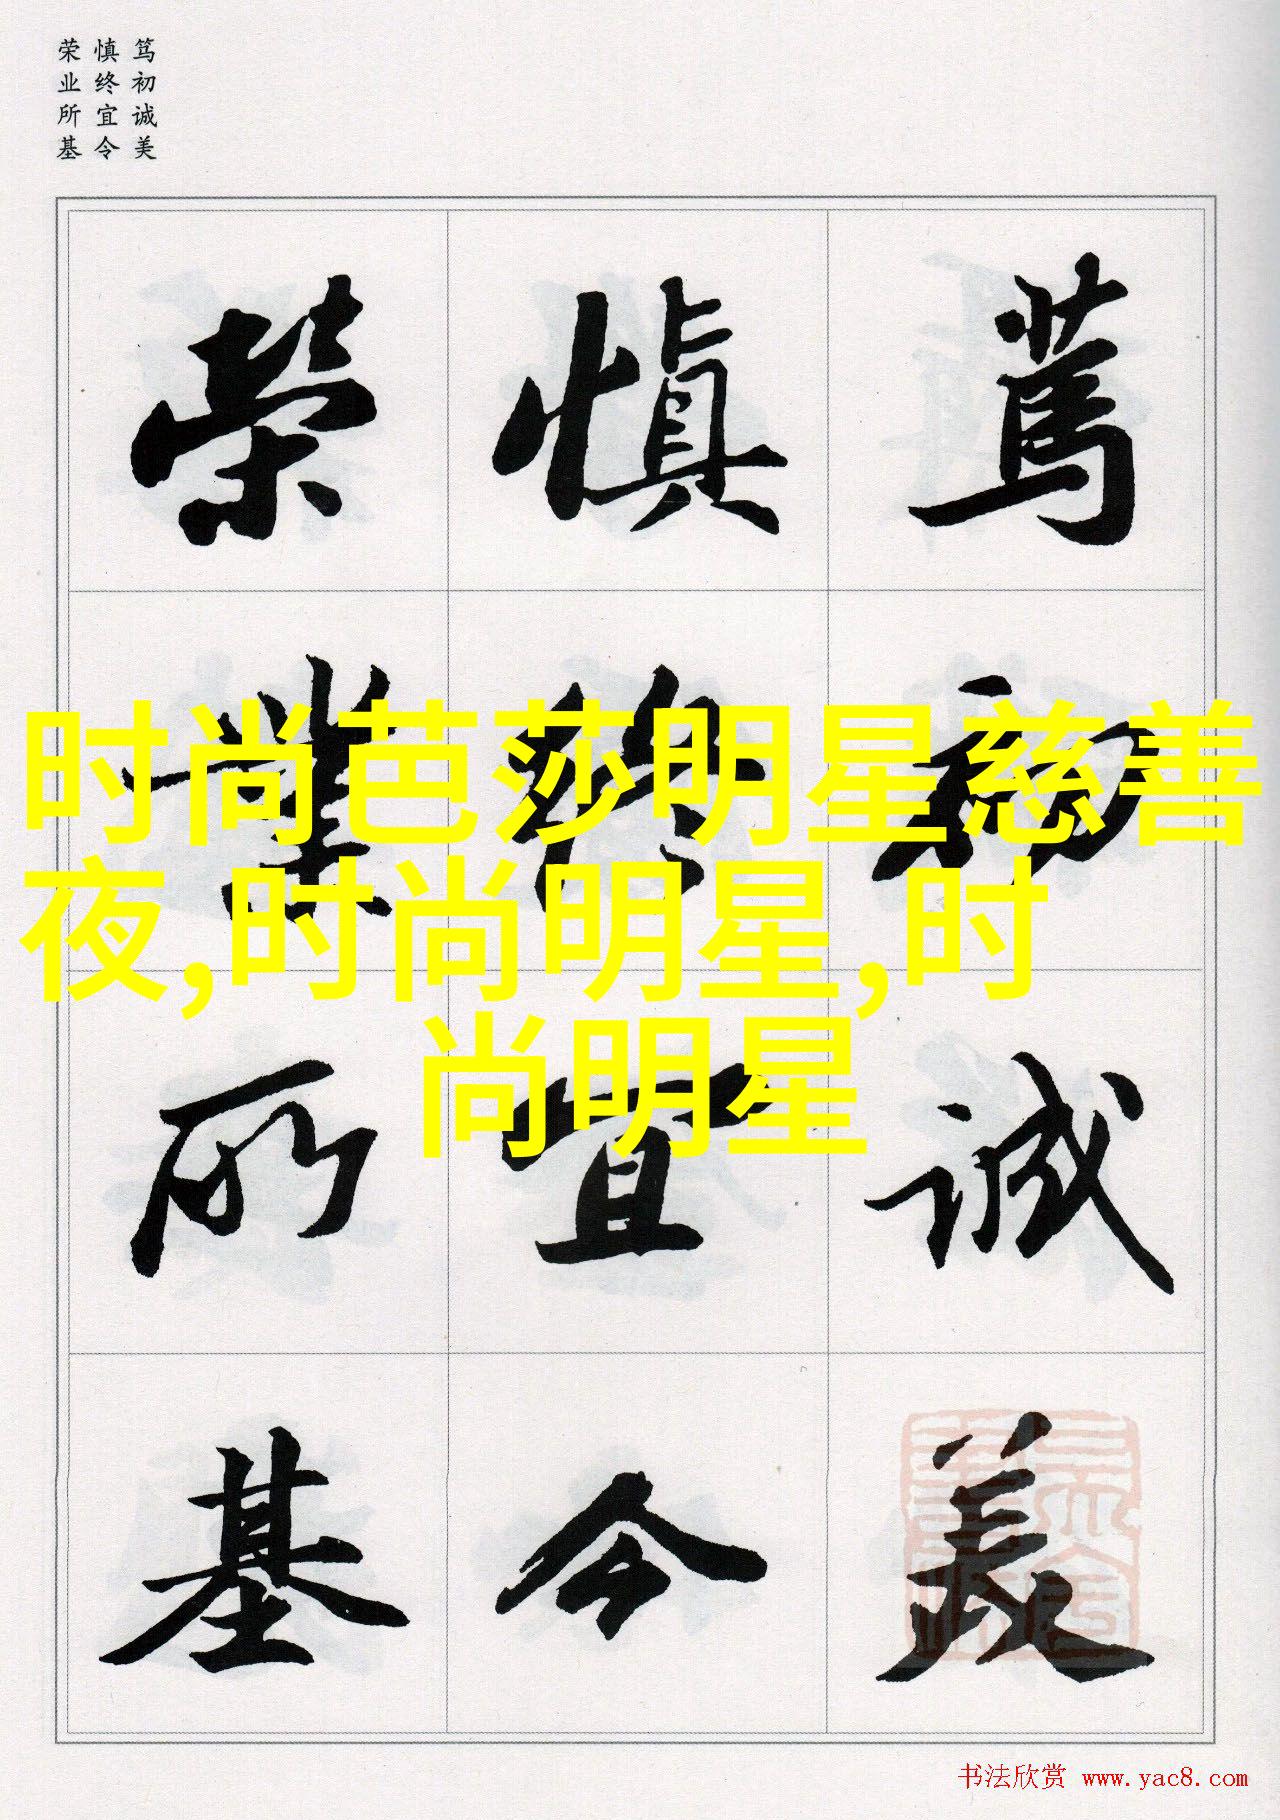 笃初诚美
慎终宜令
荣业所基
篤初诚美
慎终宜令
榮業所基
时尚芭莎明星慈善
夜,时尚明星,时
尚明星
书法欣赏 www.yac8.com